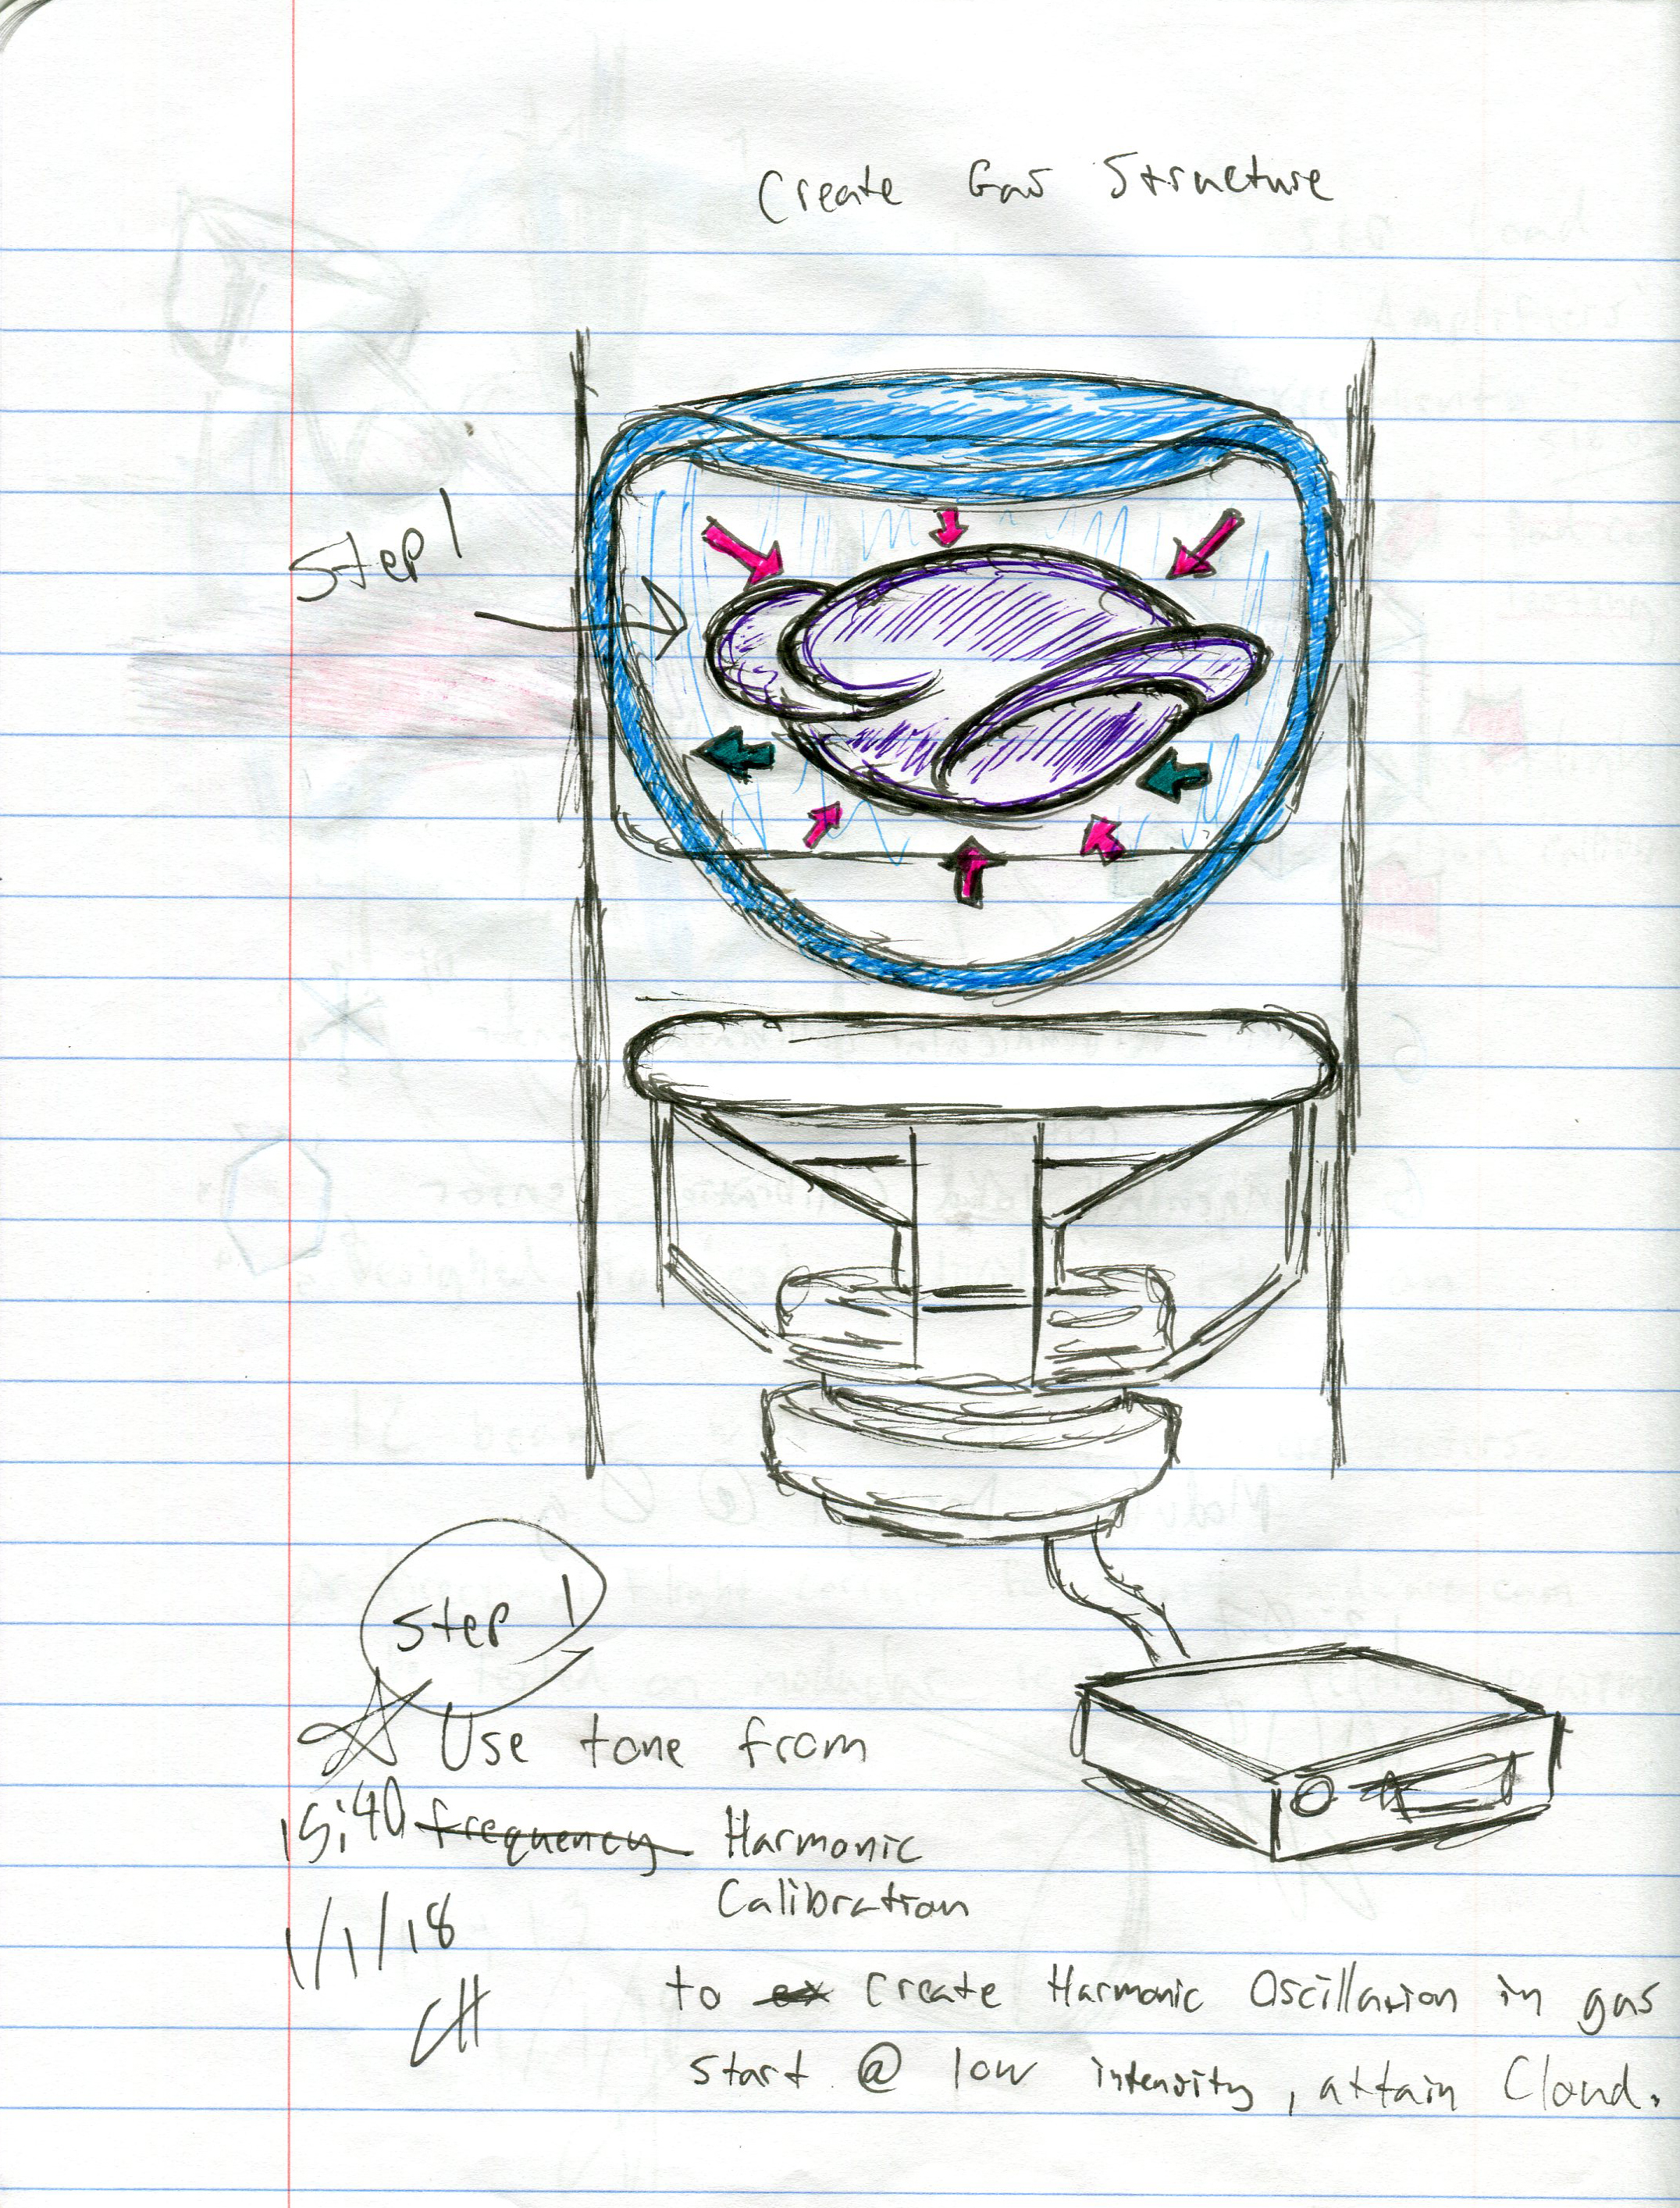 Create Gas Structure
Step 1
Step 1
Use tone from
15:40 frequency Harmonic
Calibration
1/1/18
CH
to ex create Harmonic Oscillation in gas
start @ low intensity, attain Cloud.